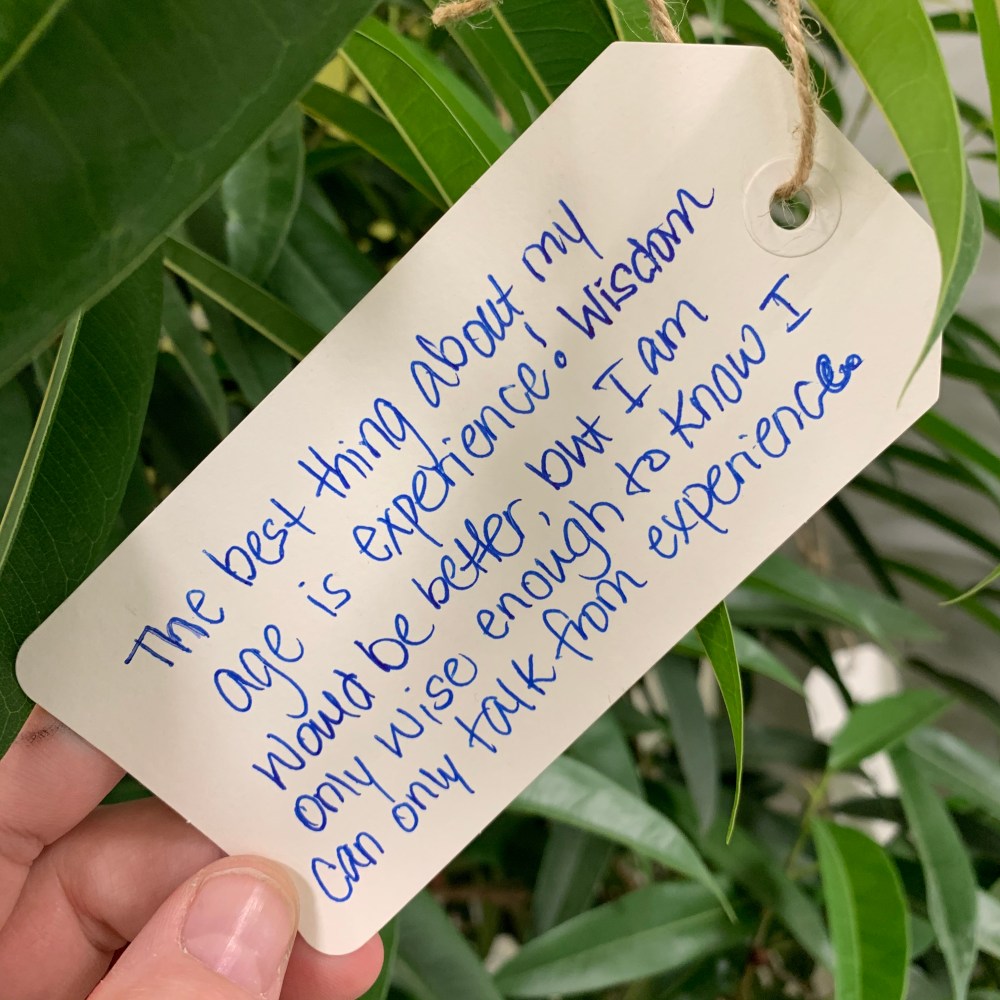 The best thing about my
age is experience! Wisdom
would be better, but I am
only wise enough to know I
can only talk from experience.